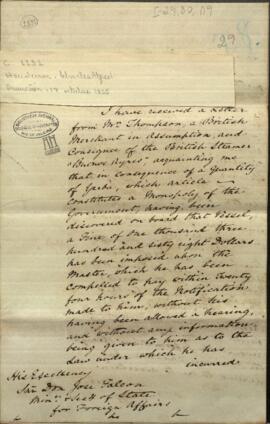 I-29,30,119
29
C 1232
Henderson, Charles Alfred
Asunción, 17 1855
I have received a Letter
from Mr. Thompson, a British
Merchant in Assumption, and
Consignee of the British Steamer
"Buenos Ayres", acquainting me
that in consequence of a Quantity
of Yerba, which article
Constitutes a Monopoly of the
Government, having been
discovered on board that Vessel,
a Fine of One thousand three
hundred and sixty eight Dollars
has been imposed upon the
Master, which he has been
Compelled to pay within twenty
four hours of the Notification
made to him, without his
having been allowed a hearing,
and without any information
being given to him as to the
Law under which he has
incurred
His Excellency
Sñr Don José Falcon
Minr. & Secy of State
for Foreign Affairs